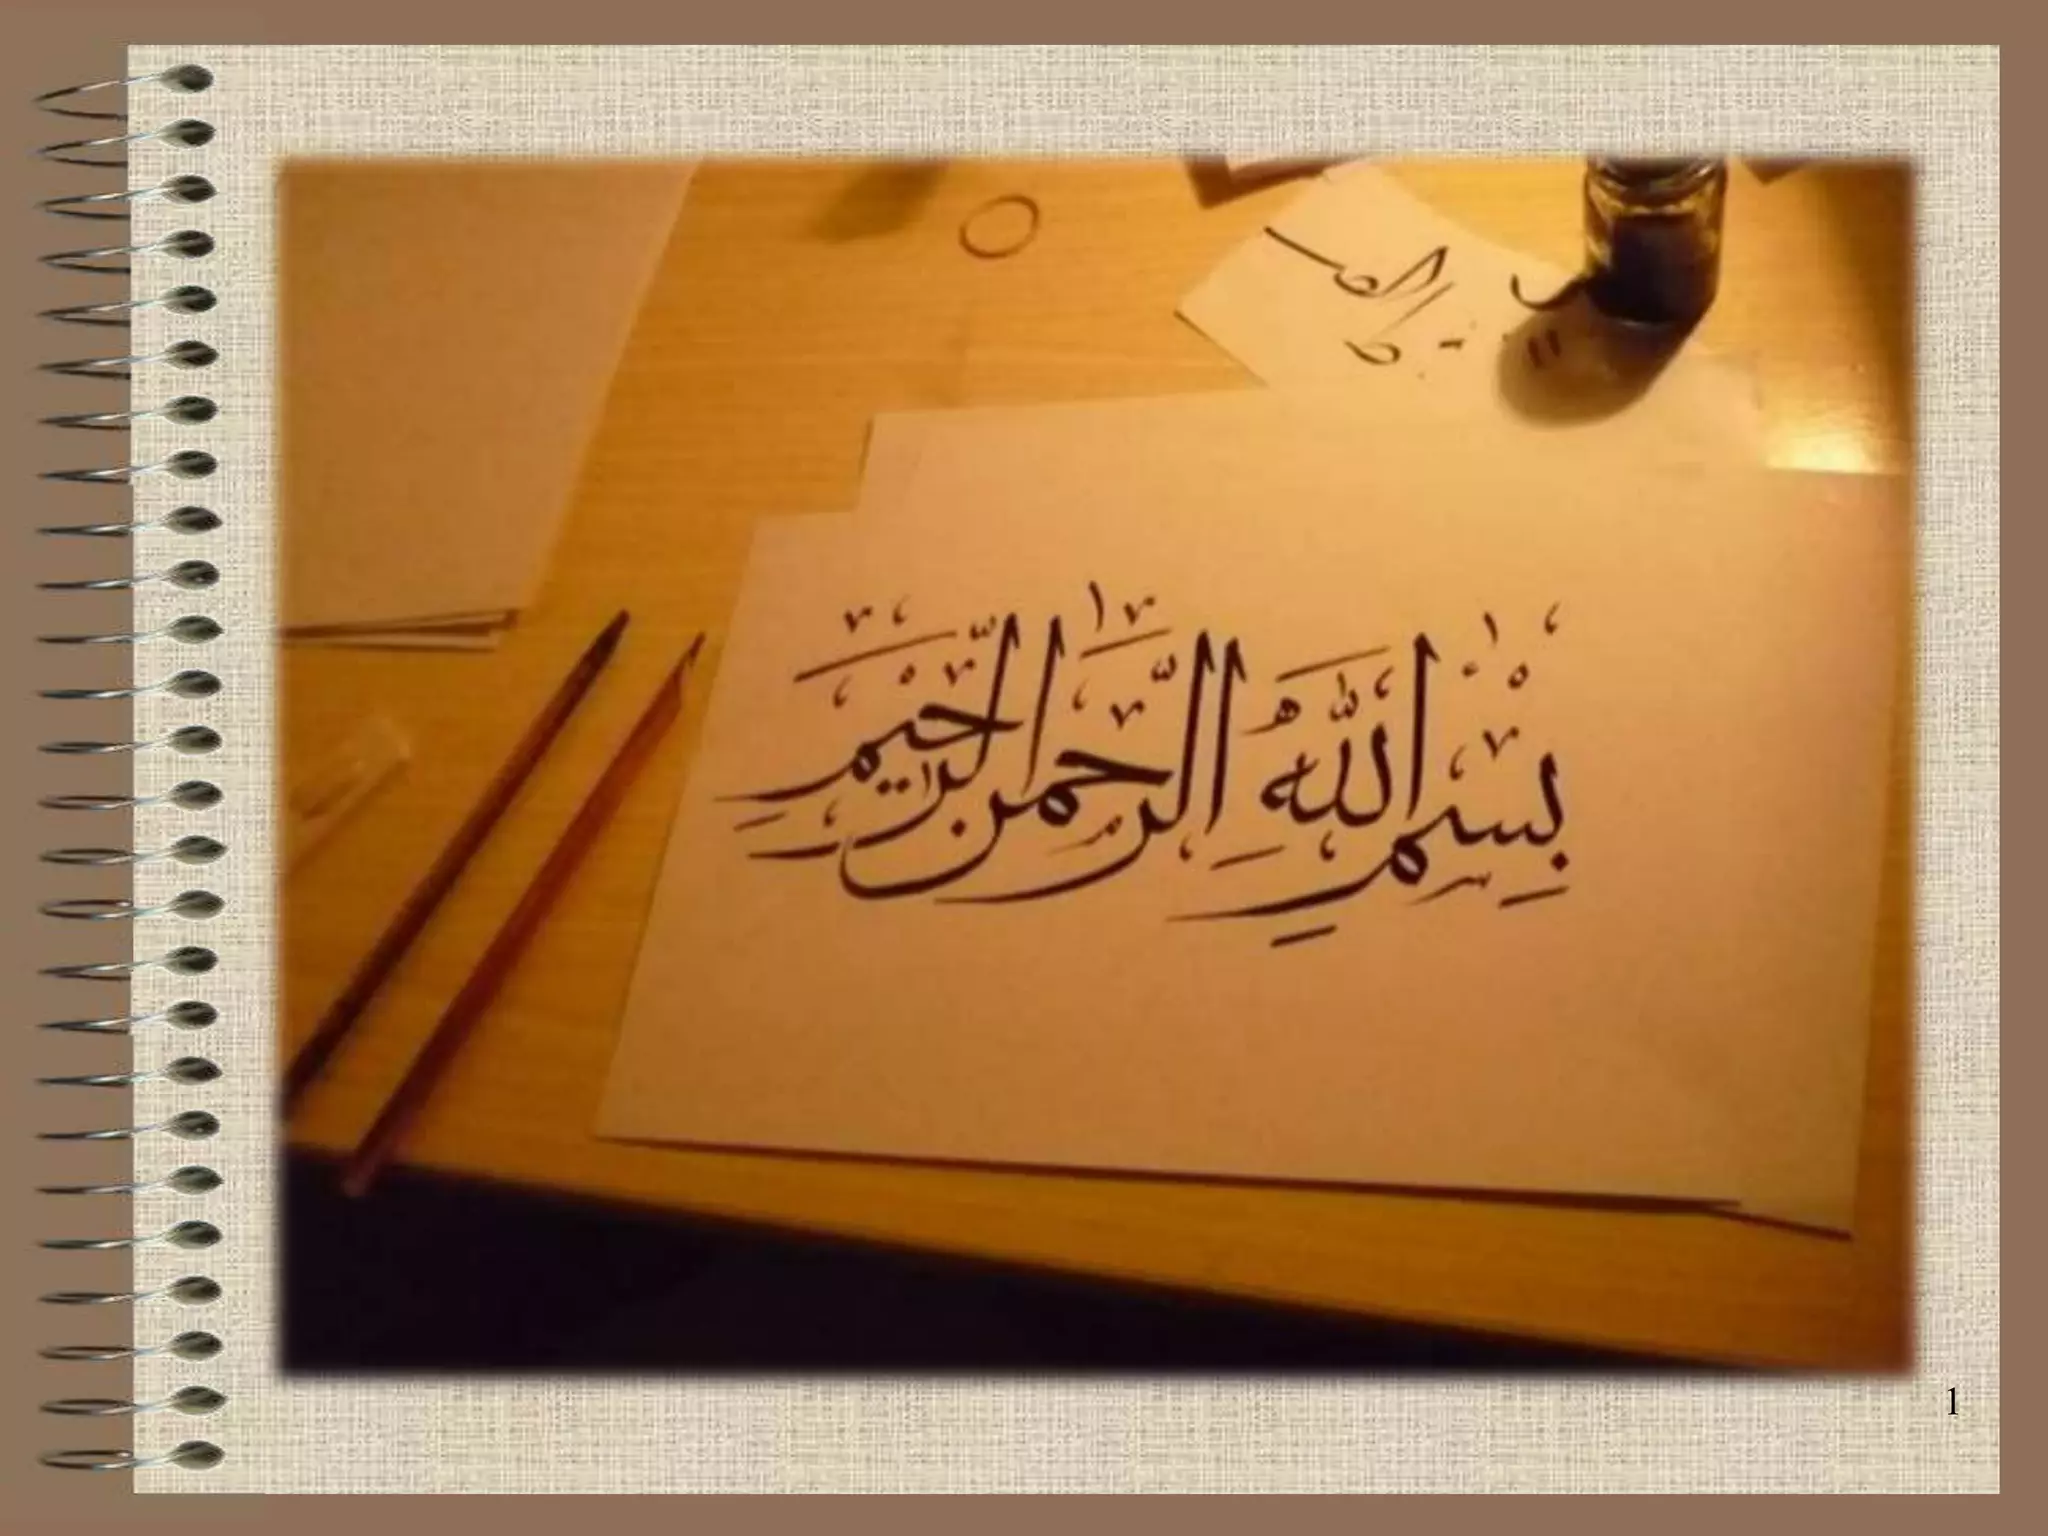 بِسْمِ اللَّهِ الرَّحْمَنِ الرَّحِيمِ
1